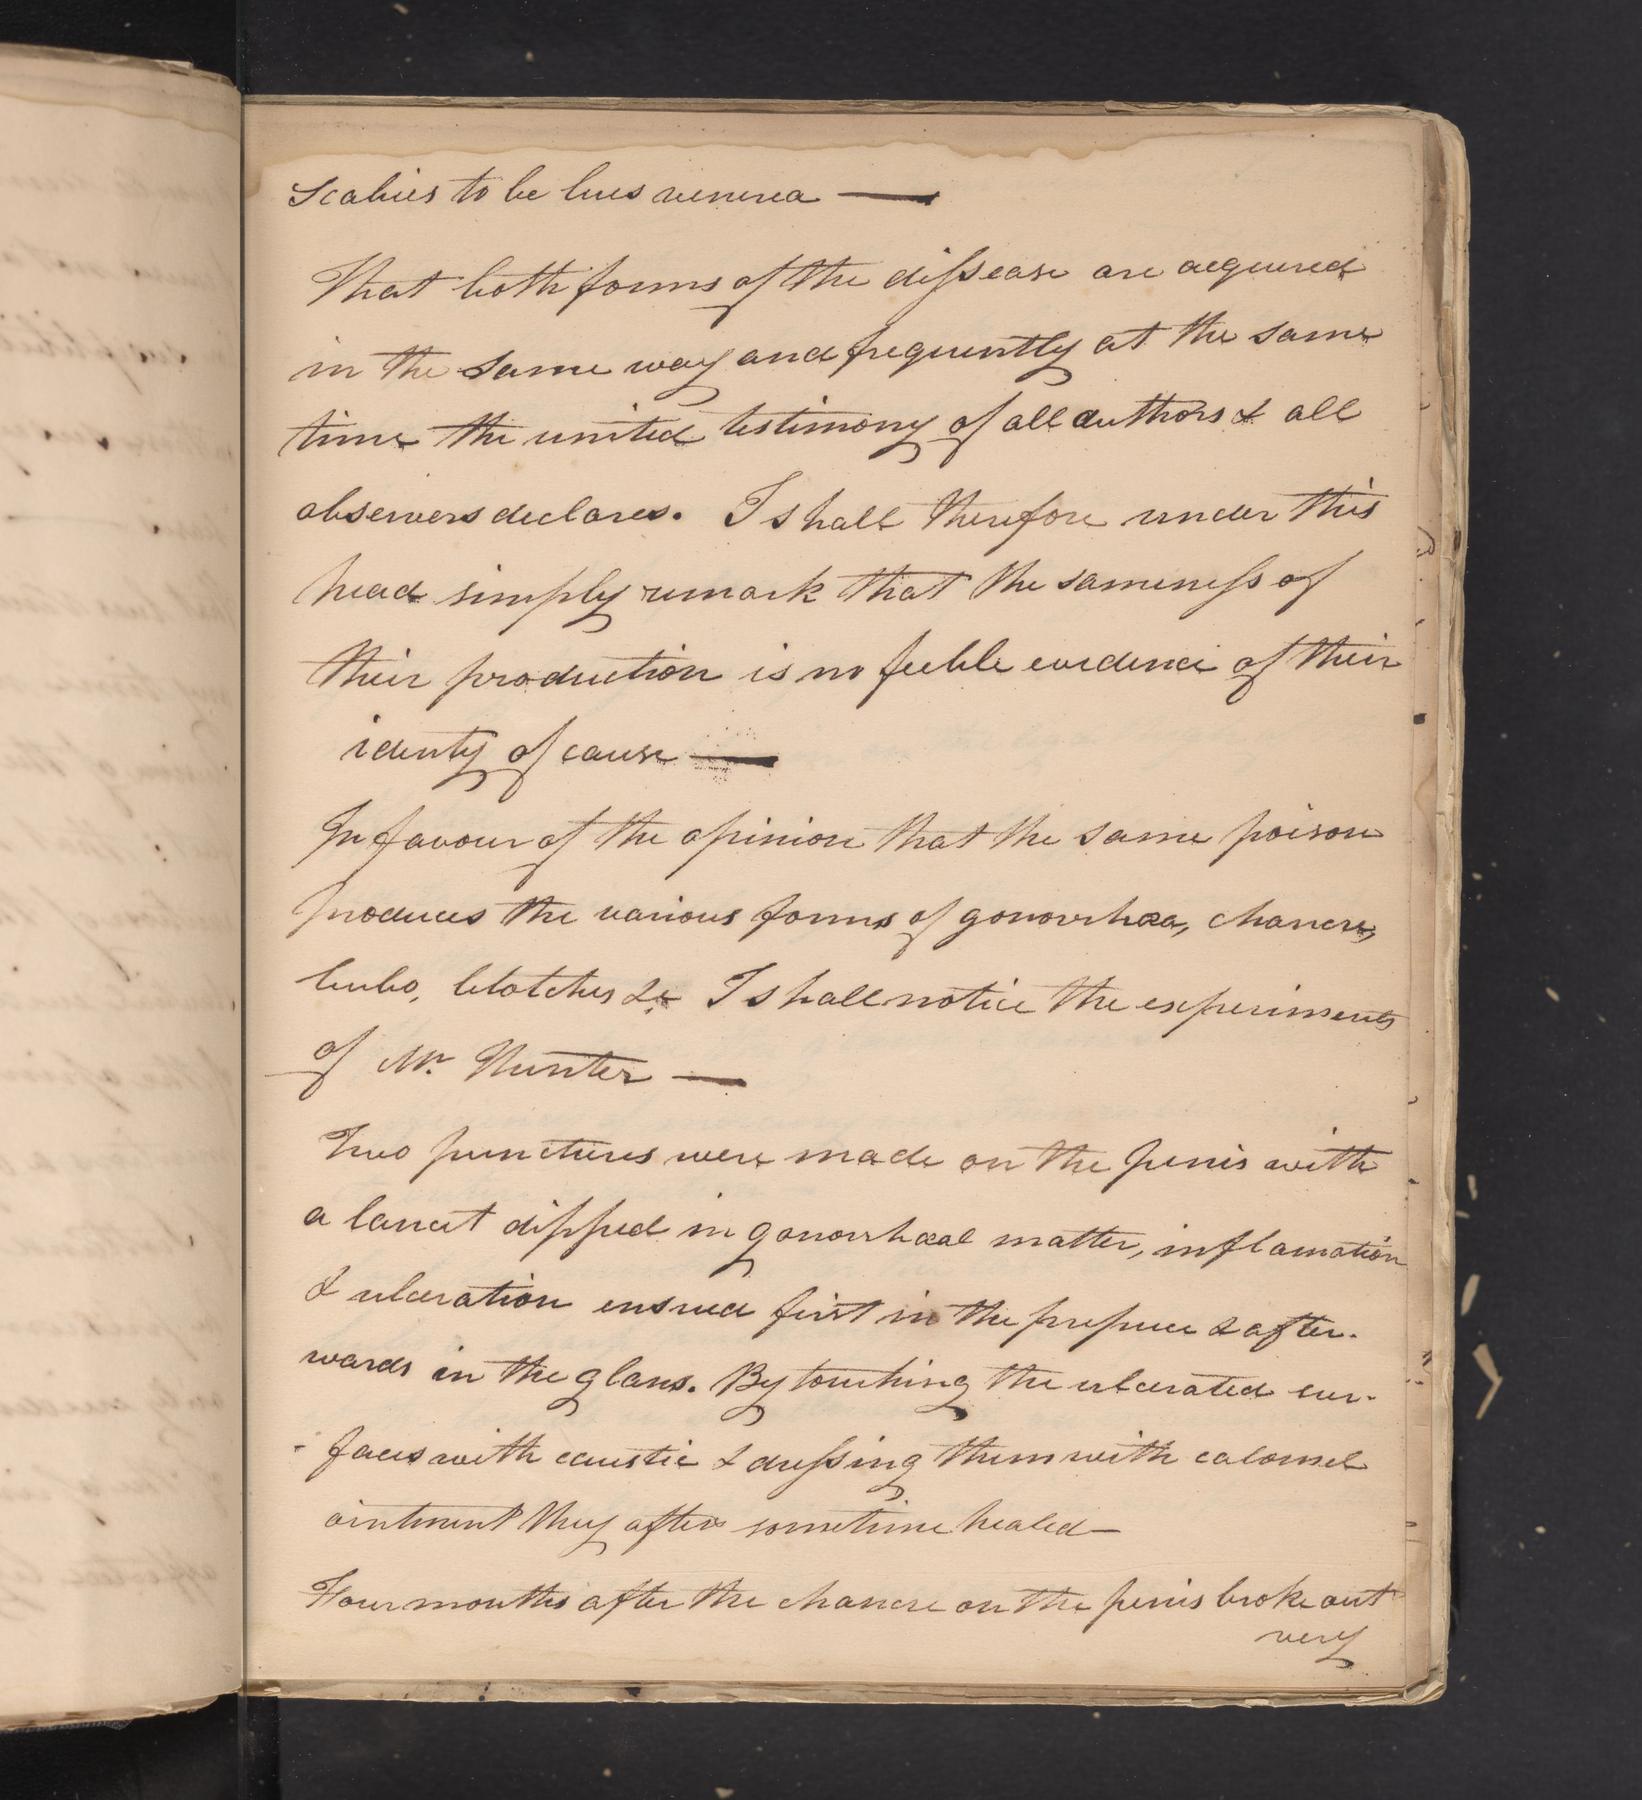 Scabies to be lues venerea —
That both forms of the disease are acquired
in the same way and frequently at the same
time the united testimony of all authors & all
observers declares. I shall therefore under this
head simply remark that the sameness of
their production is no feeble evidence of their
identy of cause —
In favour of the opinion that the same poison
produces the various forms of gonorrhœa, chancre,
bubo, blotches &c I shall notice the experiments
of Mr. Hunter —
Two punctures were made on the penis with
a lancet dipped in gonorrhœal matter, inflamation
& ulceration ensued first in the prepuce & after-
wards in the glans. By touching the ulcerated sur-
-faces with caustic & dressing them with calomel
ointment they after sometime healed —
Four months after the chancre on the penis broke out
very